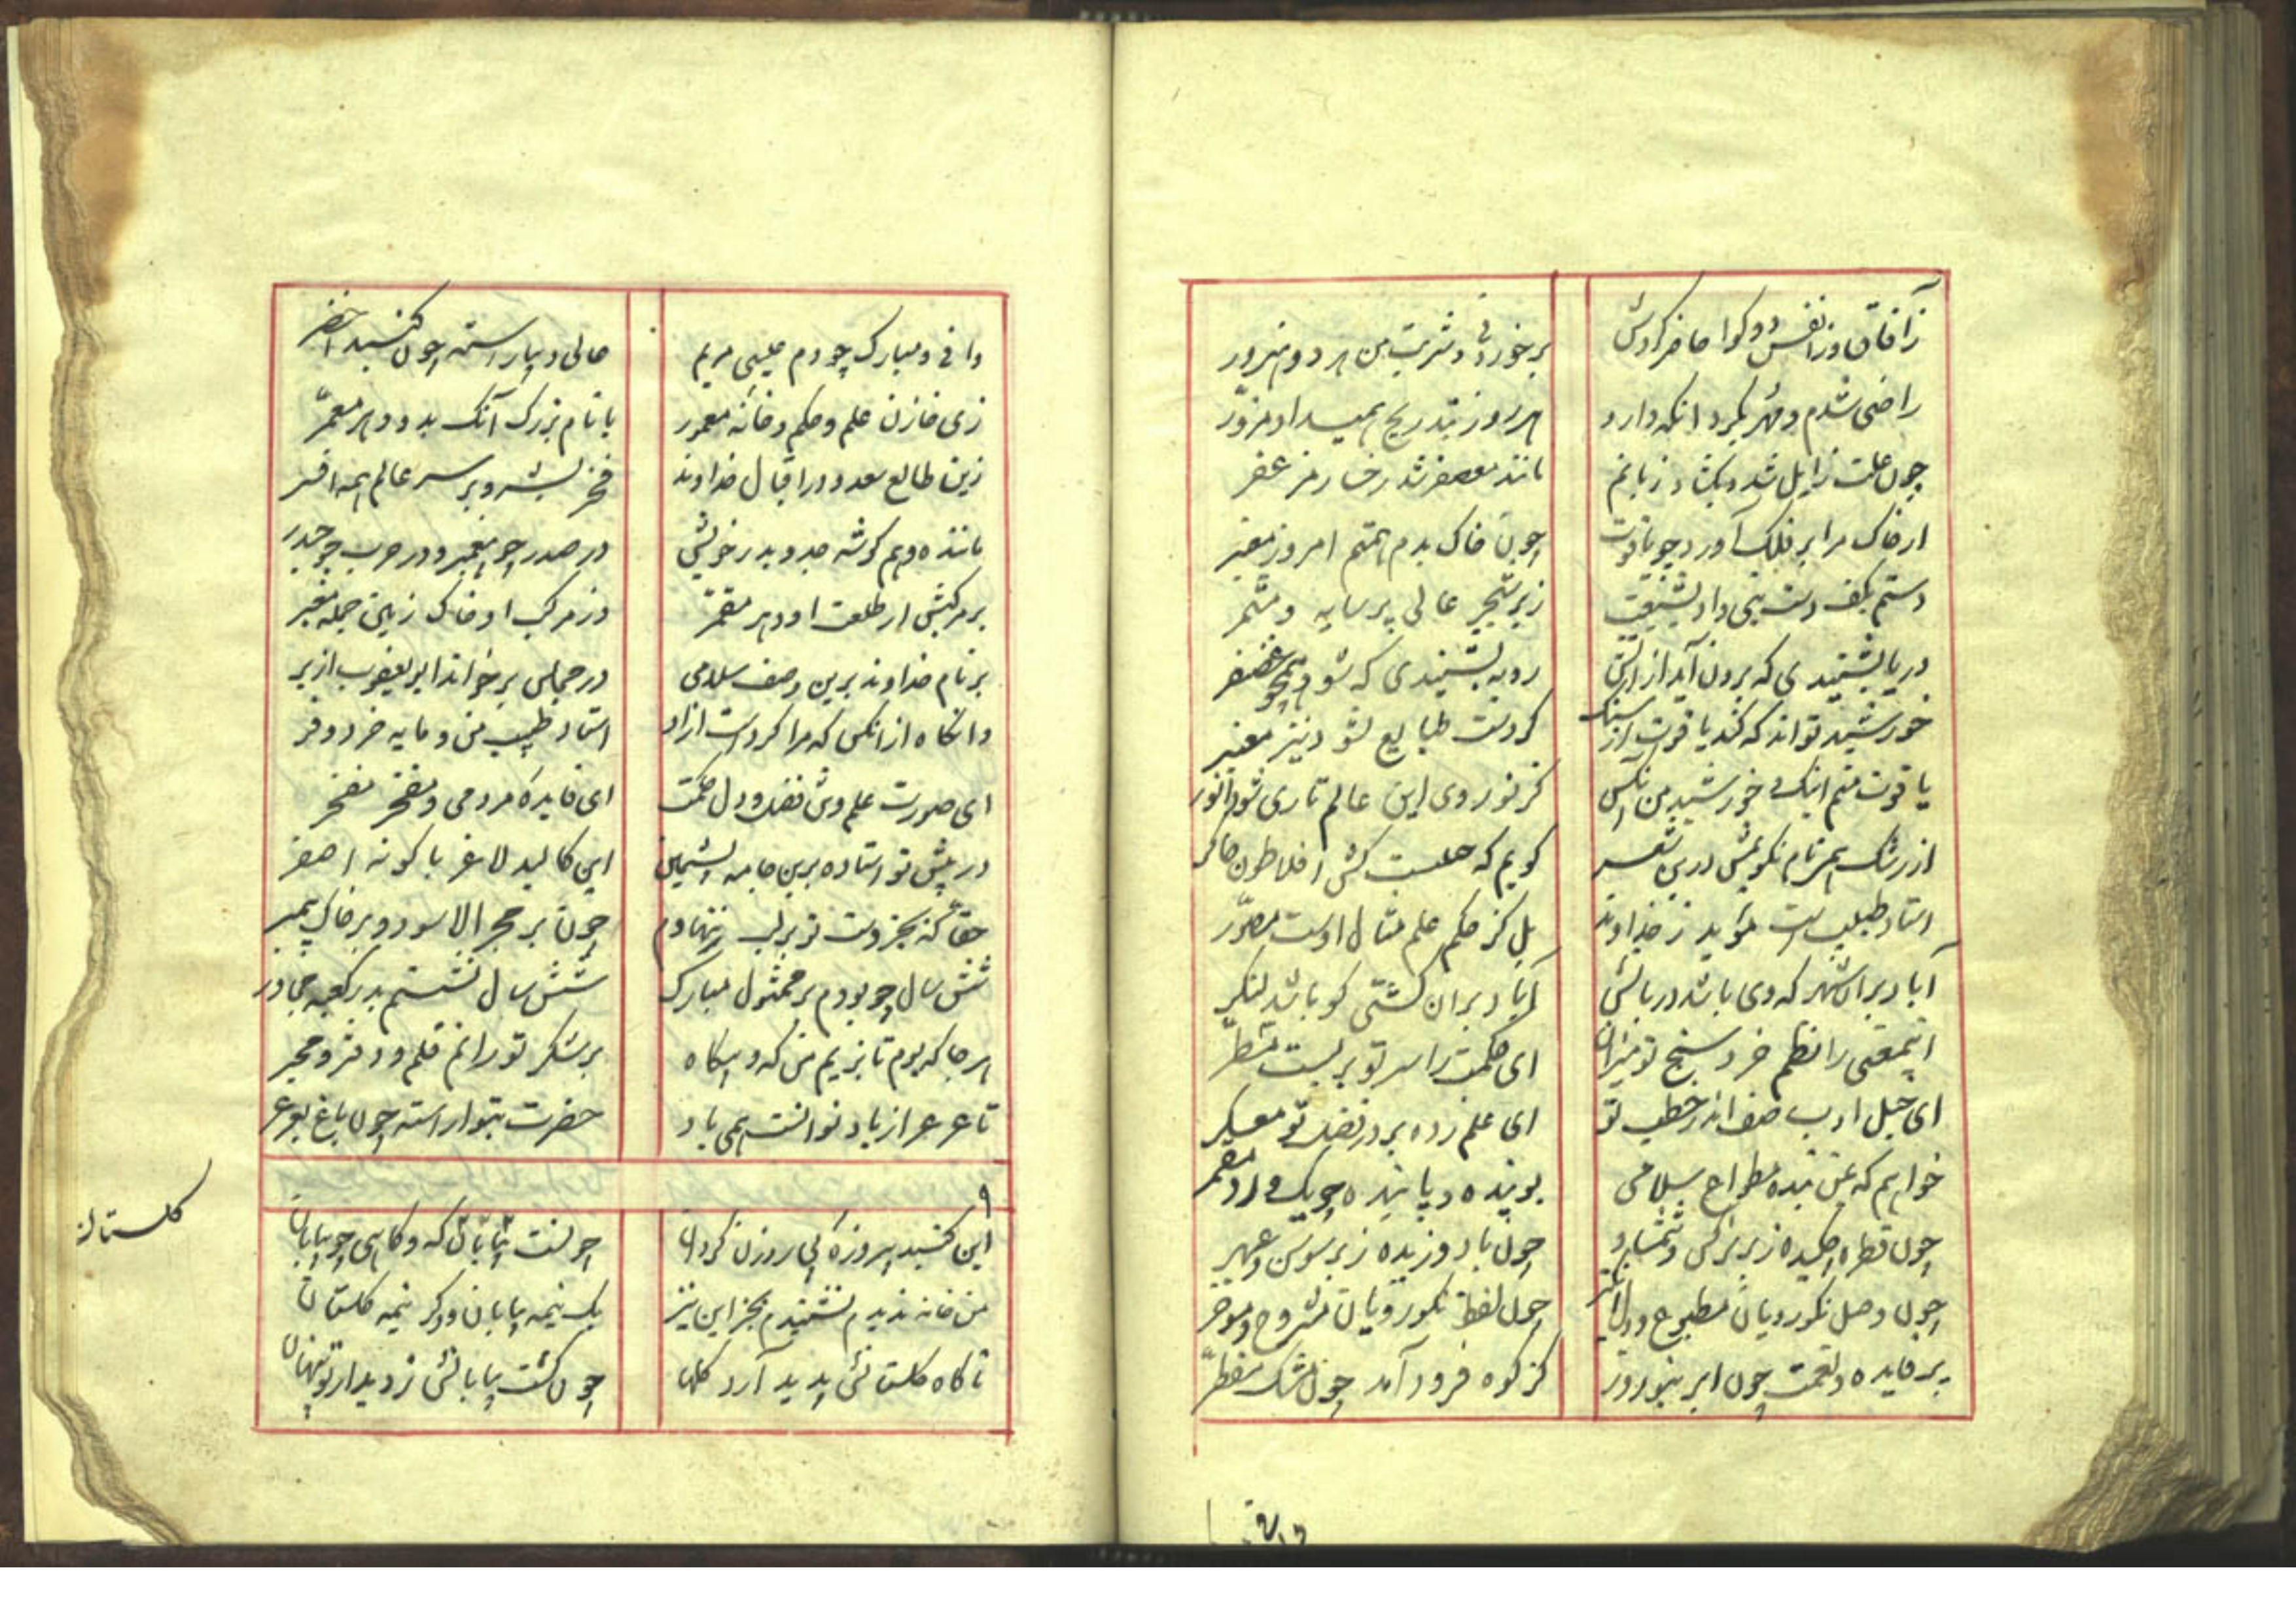 زآفاق وز انفس دو کوا حاضر کردش
بر خوردنی و شربت من مرد هنرور
راضی شدم و مهر بکرد انکه دارو
هر روز بتدریج همیداد مزوّر
چون علت زایل شد و بکشاد زبانم
مانند معصفر شد رخسار مزعفر
از خاک مرا بر فلک آورد چو یاقوت
چون خاک بدم هستم امروز معنبر
دستم بکف دست نبی داد ببیعت
زیر شجر عالی پر سایه و مثمر
دریا بشنیدی که برون آید از اتش
روبه بشنیدی که شود همچو غضنفر
خورشید تواند که کند یاقوت از سنک
کز دست طبایع نشود نیز مغیر
یاقوت منم اینک و خورشید من آنکس
کز نور وی این عالم تاری شود انور
از رشک همی نام نکویمش درین شعر
کویم که حکیمیست کش افلاطون چاکر
استاد طبیب است مؤید ز خداوند
بل کز حکم علم مثال اوست مصوّر
آباد بران شهر که وی باشد دربانش
آباد بران کشتی کو باشد لنکر
ای معنی را نظم خرد سنج تو میزان
ای حکمت را سر تو بریست مسطّر
ای خیل ادب صف زده اندر خطب تو
ای علم زده بر در فضل تو معسکر
خواهم که ز من بنده مطواع سلامی
پوینده و پاینده چو یک ورد مقمر
چون قطره چکیده ز بر نرکس و شمشاد
چون باد وزیده ز بر سوسن و عبهر
چون وصل نکورویان مطبوع و دل انکیز
چون لفظ نکورویان مشروح و موجز
پر فایده و نعمت چون ابر بنوروز
کز کوه فرود آمد چون مشک مقطّر
وافی و مبارک چو دم عیسی مریم
عالی و بیاراسته چون کنبد اخضر
زی خازن علم و حکم و خانه معمور
با نام بزرک آنک بدو دهر معمّر
زین طالع سعد و در اقبال خداوند
فخر بشر و بر سر عالم همه افسر
ماننده و هم کوشه جد و پدر خویش
در صدر چو پیغمبر و در حرب چو حیدر
بر مرکبش از طلعت او دهر مقمّر
وز مرکب او خاک زمین جمله معنبر
بر نام خداوند برین وصف سلامی
در مجلس بر خواند ابو یعقوب از بر
وانکاه از انکس که مرا کردست ازاد
استاد طبیب من و مایه خرد و فر
ای صورت علم و تن فضل و دل حکمت
ای فایده مردمی و مفخر مفخر
در پیش تو استاده برین جامه پشمین
این کالبد لاغر با کونه اصفر
حقا که بجز دست تو بر لب ننهادم
چون بر حجر الاسود و بر خاک پیمبر
شش سال چو بودم بر ممثول مبارک
شش سال نشستم بدر کعبه مجاور
هر جا که بوم تا بزیم من که و بیکاه
بر شکر تو رانم قلم و دفتر و محبر
تا عرعر از باد نوانست همی باد
حضرت بتو اراسته چون باغ بعرعر
۹
این کنبد پیروزه بی روزن کردان
چونست بیابانش که و کاهی چو بیابان
من خانه ندیدم نشنیدم بجز این نیز
یک نیمه بیابان و دکر نیمه کلستان
تا کاه کلستانش پدید آرد کلها
چون کشت بیابانش ز دیدار تو پنهان
کلستان